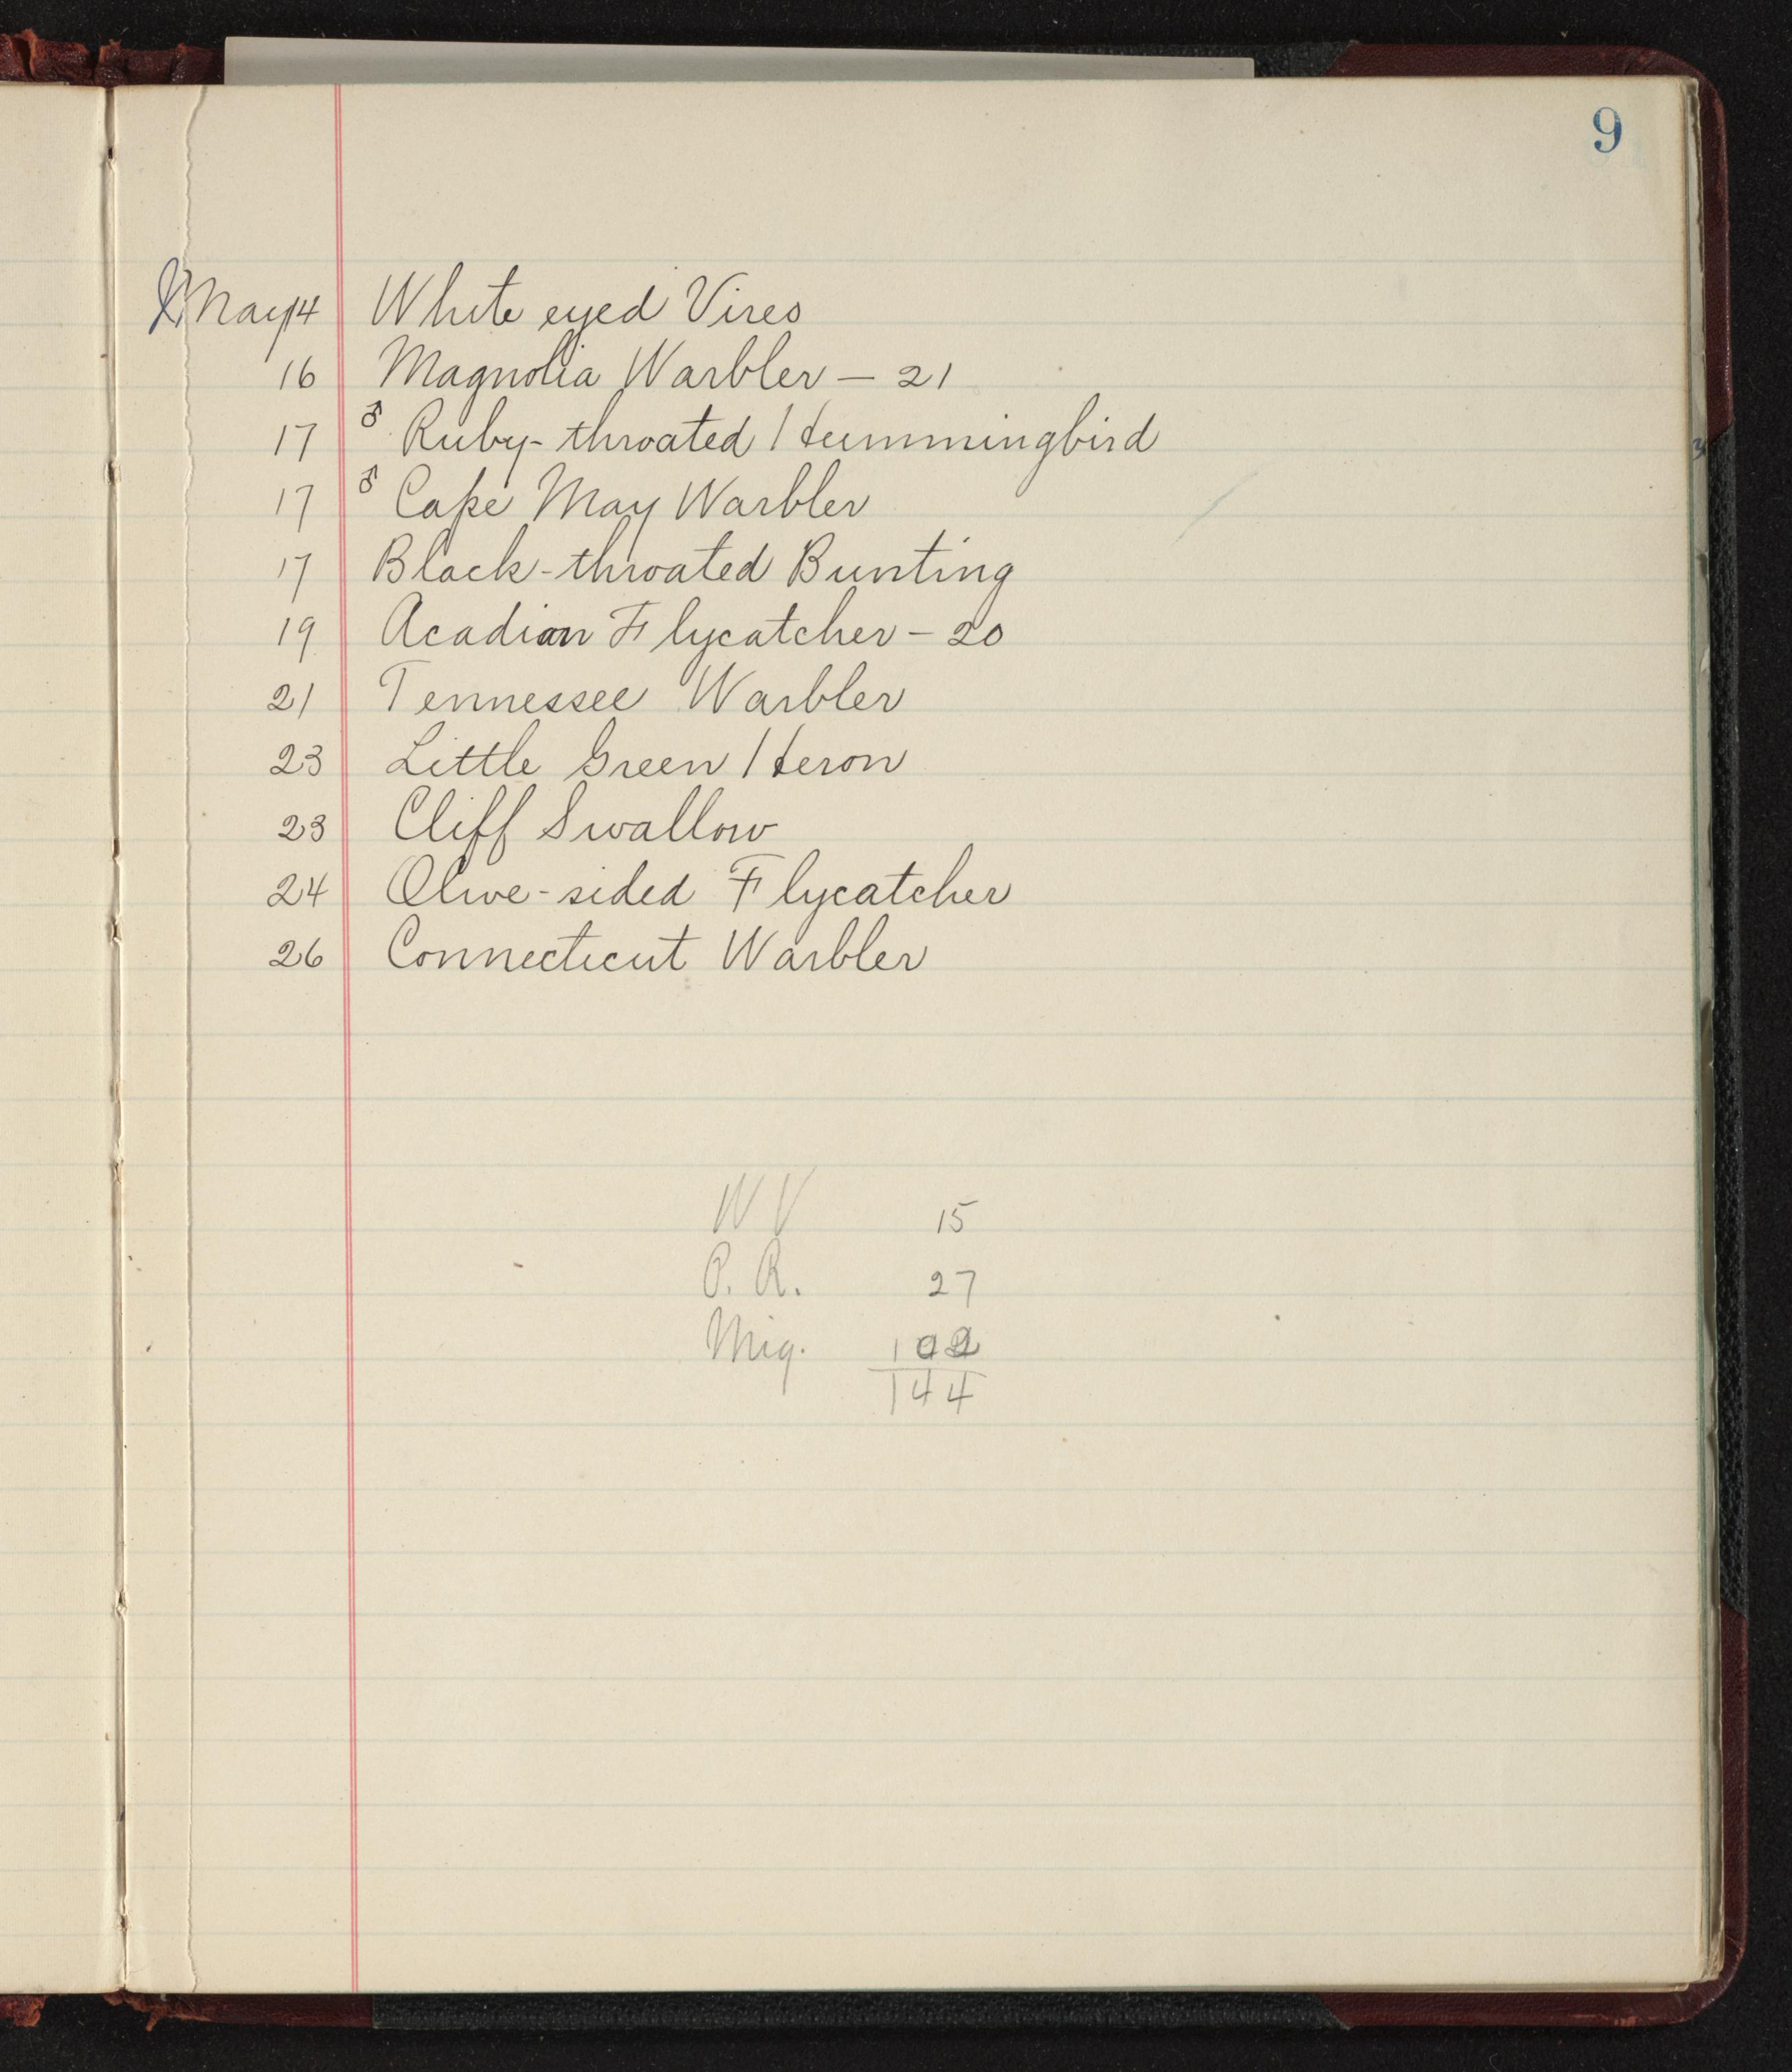 9
May 14 White eyed Vireo
16 Magnolia Warbler — 21
17 ♂ Ruby-throated Hummingbird
17 ♂ Cape May Warbler
17 Black-throated Bunting
19 Acadian Flycatcher — 20
21 Tennessee Warbler
23 Little Green Heron
23 Cliff Swallow
24 Olive-sided Flycatcher
26 Connecticut Warbler
W V 15
P. R. 27
Mig. 102
144